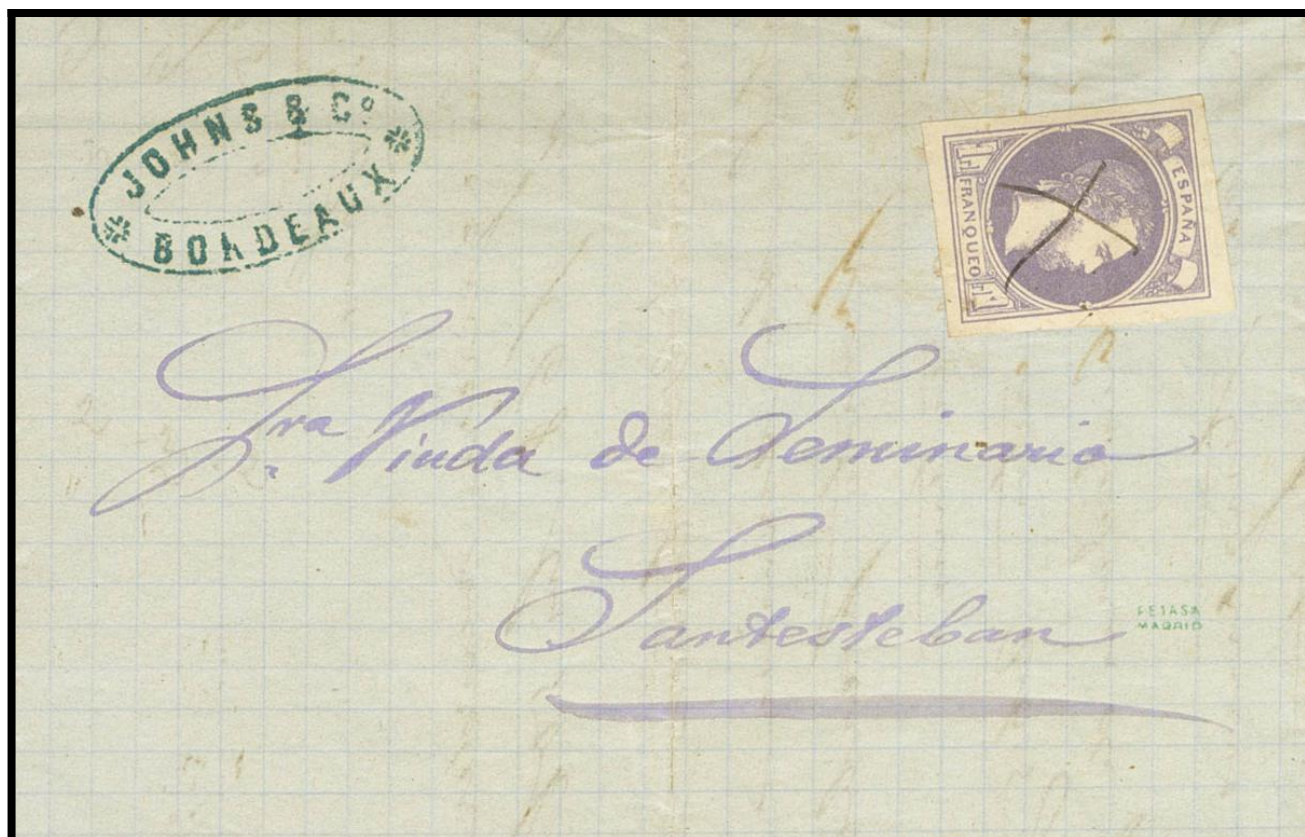 JOHNS & Cº
BORDEAUX
ESPAÑA
FRANQUEO
1 Rl
1 Rl
Sra Viuda de Seminario
Santesteban
PETASA
MADRID